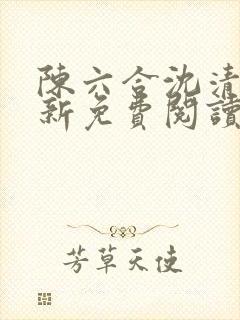 陳六合沈清
新免費閱讀
芳草天使